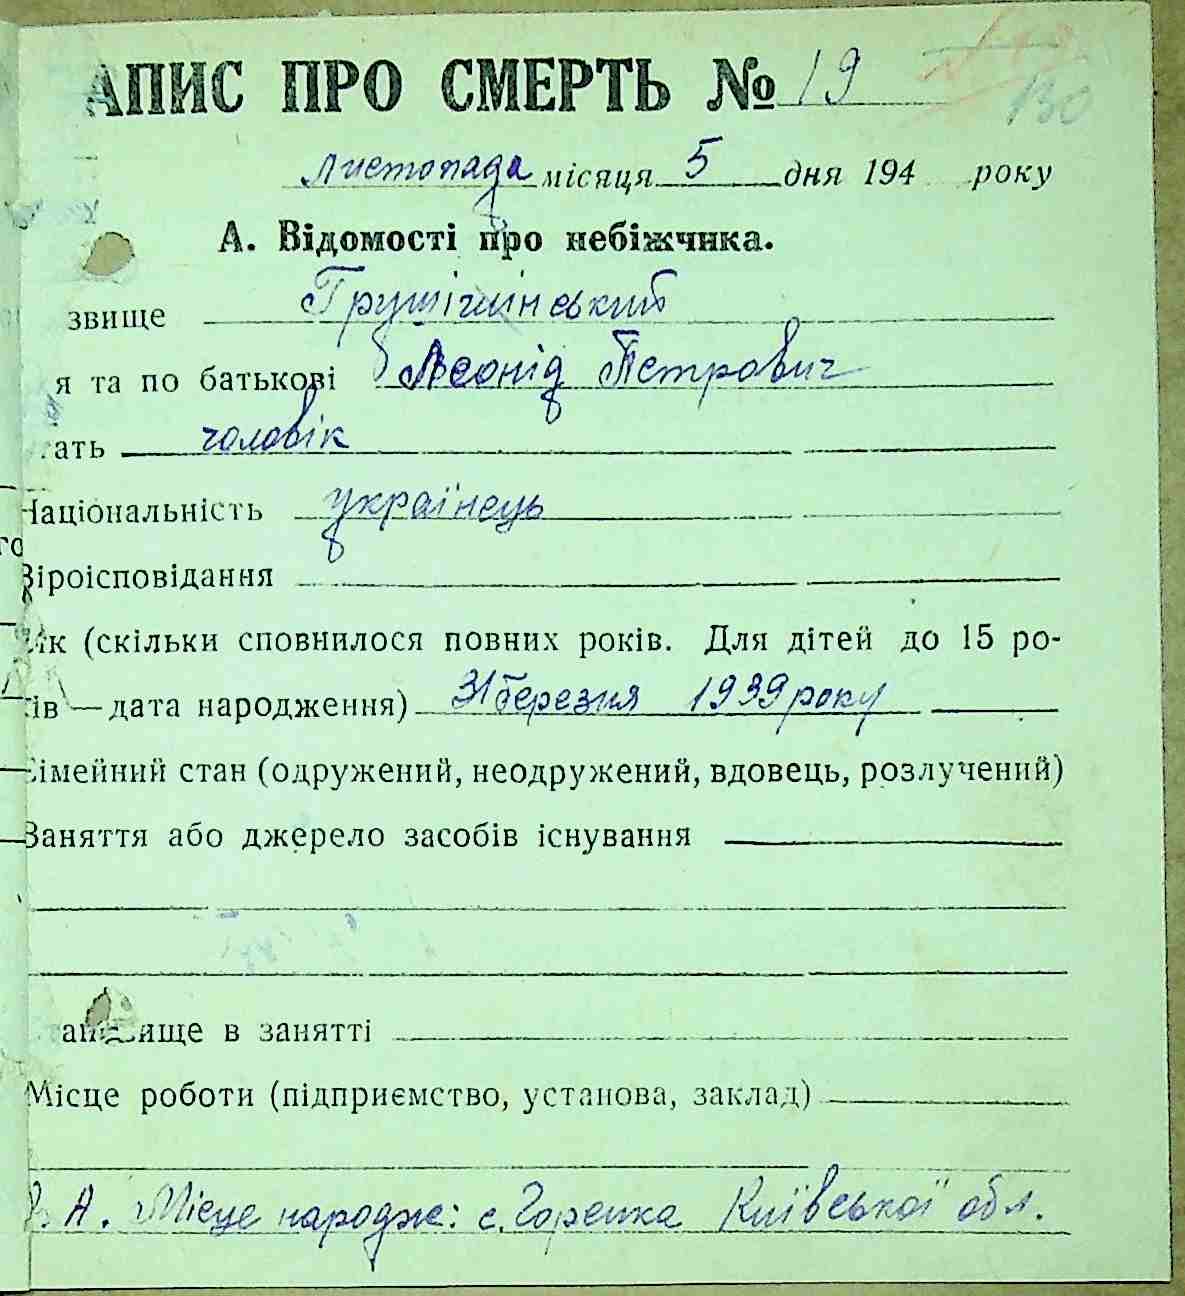 АПИС ПРО СМЕРТЬ № 19
130
листопада місяця 5 дня 194 року
А. Відомості про небіжчика.
звище Грушігшінський
я та по батькові Леонід Петрович
ать чоловік
Національність українець
Віроісповідання
ік (скільки сповнилося повних років. Для дітей до 15 ро-
ів — дата народження) 31 березня 1939 року
імейний стан (одружений, неодружений, вдовець, розлучений)
Заняття або джерело засобів існування
ище в занятті
Місце роботи (підприємство, установа, заклад)
А. Місце народж: с. Горенка Київської обл.